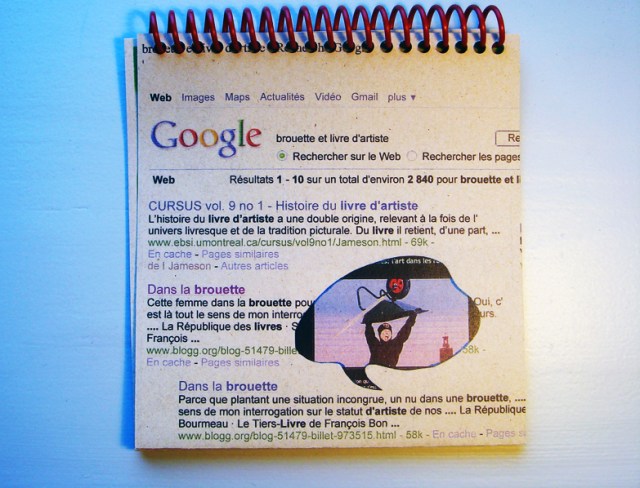 Web Images Maps Actualités Vidéo Gmail plus ▼
Google brouette et livre d'artiste Re
Rechercher sur le Web Rechercher les pages
Web Résultats 1 - 10 sur un total d'environ 2 840 pour brouette et li
CURSUS vol. 9 no 1 - Histoire du livre d'artiste
L'histoire du livre d'artiste a une double origine, relevant à la fois de l'
univers livresque et de la tradition picturale. Du livre il retient, d'une part, ...
www.ebsi.umontreal.ca/cursus/vol9no1/Jameson.html - 69k -
En cache - Pages similaires
de I Jameson - Autres articles
Dans la brouette
Cette femme dans la brouette pou Oui, c'
est là tout le sens de mon interro urs.
.... La République des livres · S
François ...
www.blogg.org/blog-51479-bille 58k -
En cache - Pages similaires
l'art dans les
Dans la brouette
Parce que plantant une situation incongrue, un nu dans une brouette, ....
sens de mon interrogation sur le statut d'artiste de nos .... La République
Bourmeau · Le Tiers-Livre de François Bon ...
www.blogg.org/blog-51479-billet-973515.html - 58k - En cache - Pages s